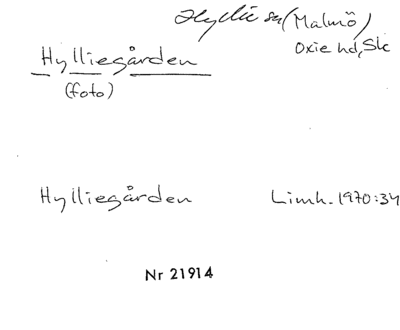 Hyllie sn (Malmö)
Oxie hd, Sk
Hylliegården
(foto)
Hylliegården Limh. 1970:34
Nr 21914